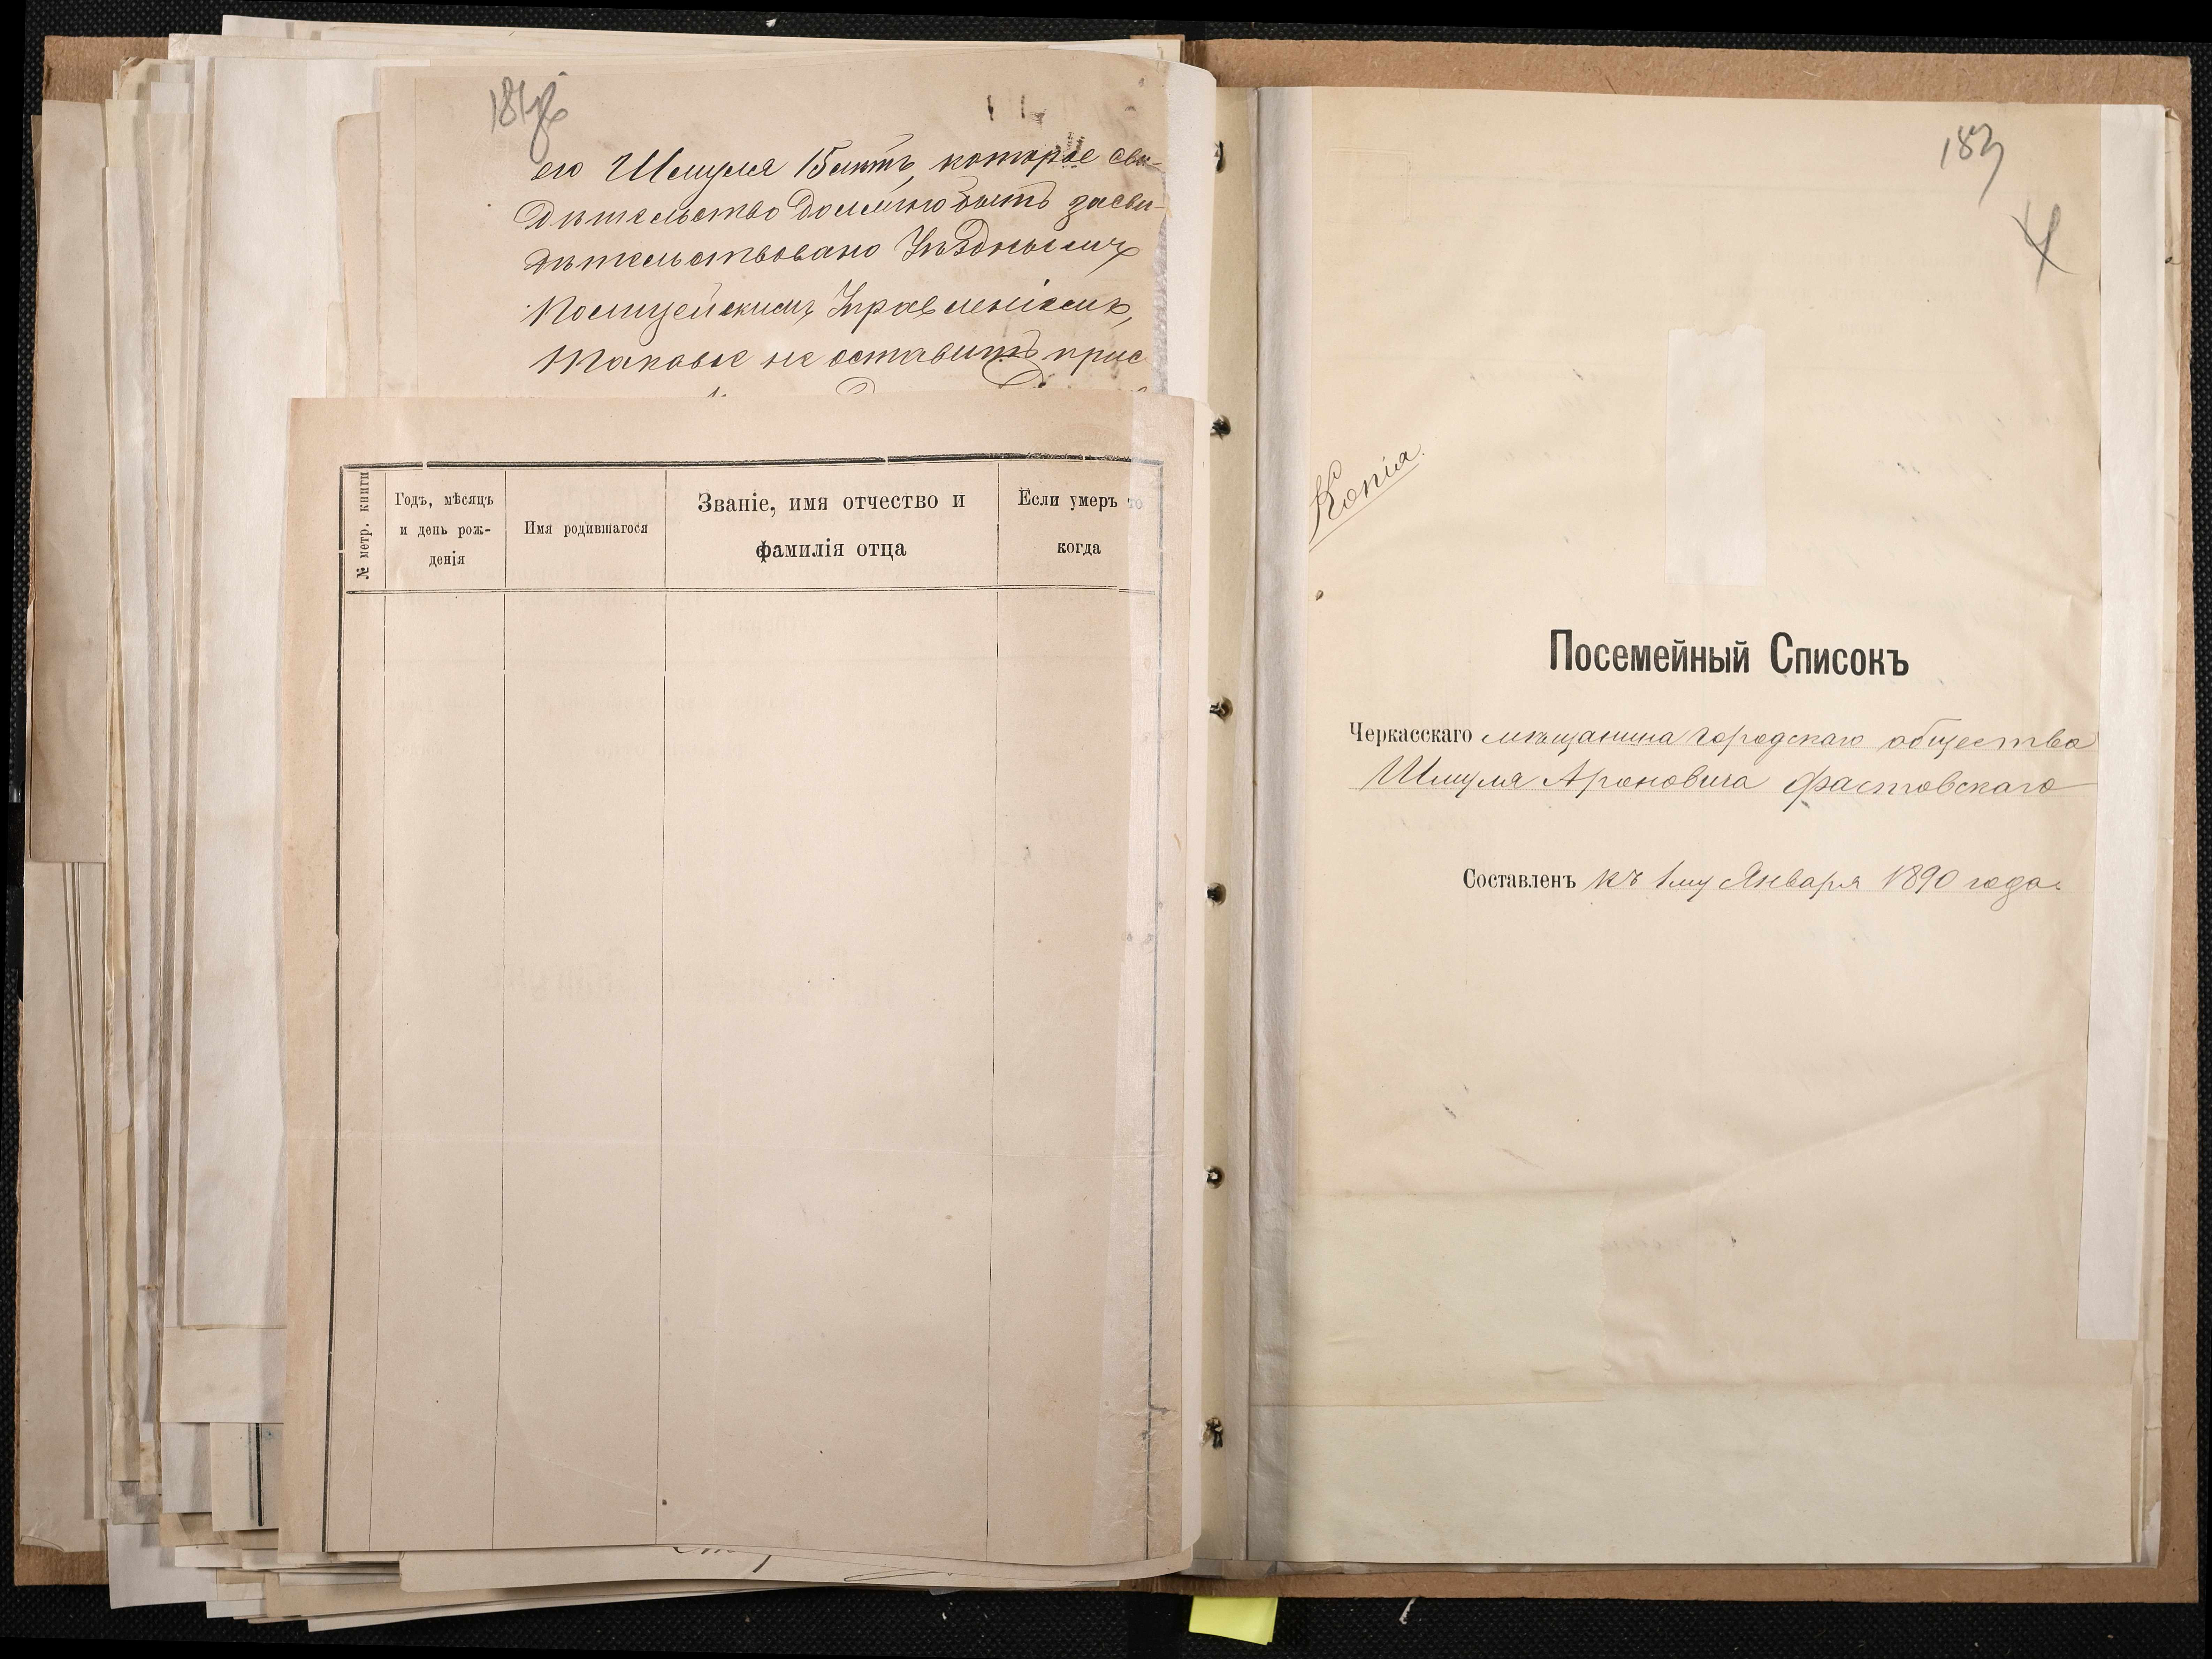 его Шмуля 15 лѣтъ, которое сви-
дѣтельство должно быть засви-
дѣтельствовано Уѣзднымъ
Полицейскимъ Управленіемъ,
таковое не оставить прис
№ метр. книги
Годъ, мѣсяцъ
и день рож-
денія
Имя родившагося
Званіе, имя отчество и
фамилія отца
Если умеръ то
когда
183
4
Копія.
Посемейный Списокъ
Черкасскаго мѣщанина городскаго общества
Шмуля Ароновича Фастовскаго
Составленъ къ 1му Января 1890 года.